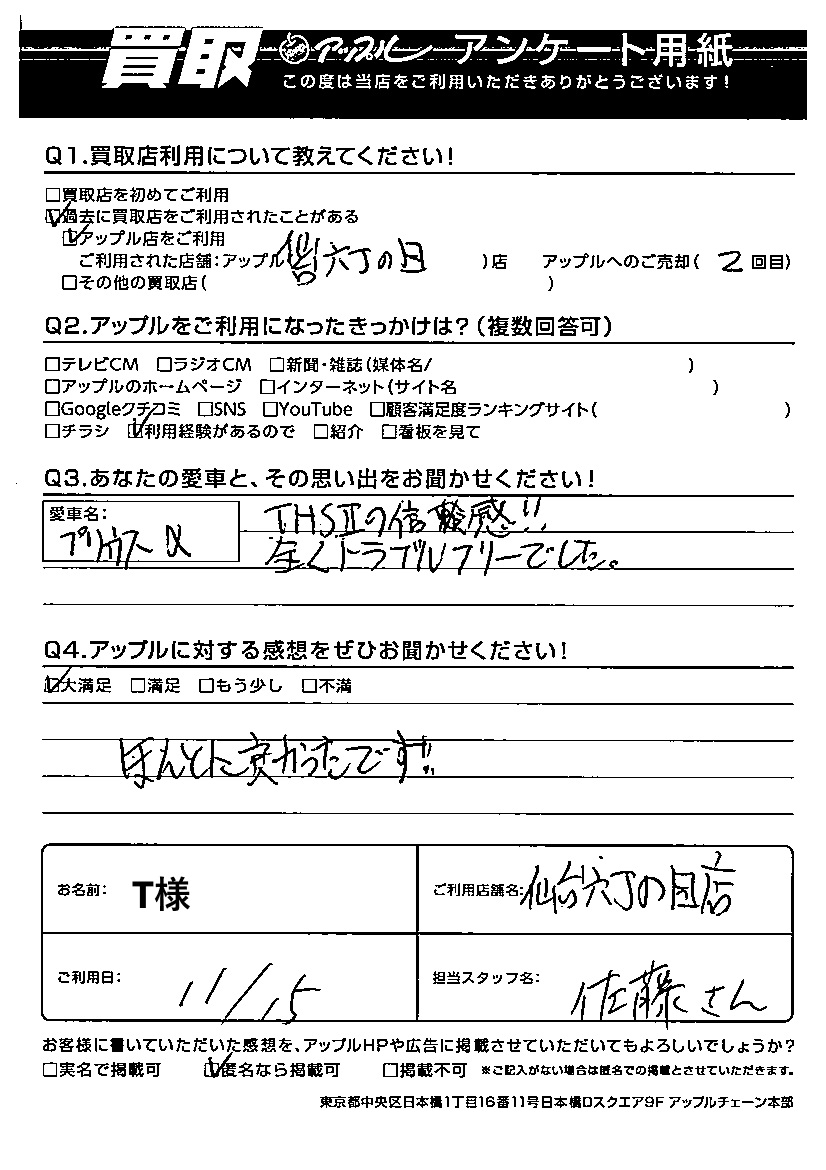 買取 アップル アンケート用紙
この度は当店をご利用いただきありがとうございます!
Q1.買取店利用について教えてください!
□買取店を初めてご利用
☑過去に買取店をご利用されたことがある
☑アップル店をご利用
ご利用された店舗:アップル仙台六丁の目 )店 アップルへのご売却( 2 回目)
□その他の買取店( )
Q2.アップルをご利用になったきっかけは?(複数回答可)
□テレビCM □ラジオCM □新聞・雑誌(媒体名/ )
□アップルのホームページ □インターネット(サイト名 )
□Googleクチコミ □SNS □YouTube □顧客満足度ランキングサイト( )
□チラシ ☑利用経験があるので □紹介 □看板を見て
Q3.あなたの愛車と、その思い出をお聞かせください!
愛車名:
プリウスα
THSⅡの信頼感!!
全くトラブルフリーでした。
Q4.アップルに対する感想をぜひお聞かせください!
☑大満足 □満足 □もう少し □不満
ほんとに良かったです!!
お名前: T様
ご利用店舗名: 仙台六丁の目店
ご利用日: 11/15
担当スタッフ名: 佐藤さん
お客様に書いていただいた感想を、アップルHPや広告に掲載させていただいてもよろしいでしょうか?
□実名で掲載可 ☑匿名なら掲載可 □掲載不可 ※ご記入がない場合は匿名での掲載とさせていただきます。
東京都中央区日本橋1丁目16番11号日本橋ロスクエア9F アップルチェーン本部